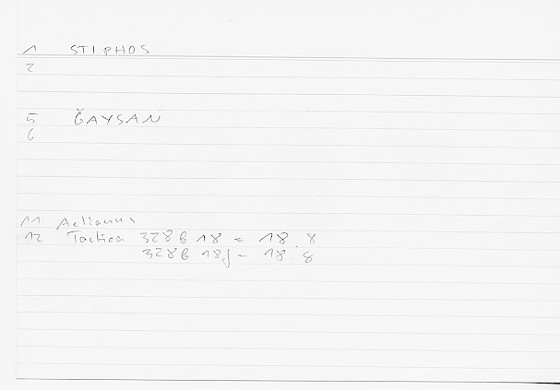 1 STIPHOS
2
5 ǦAYSAN
6
11 Aelianus
12 Tactica 328 B 18 = 18.8
328 B 18f = 18 8